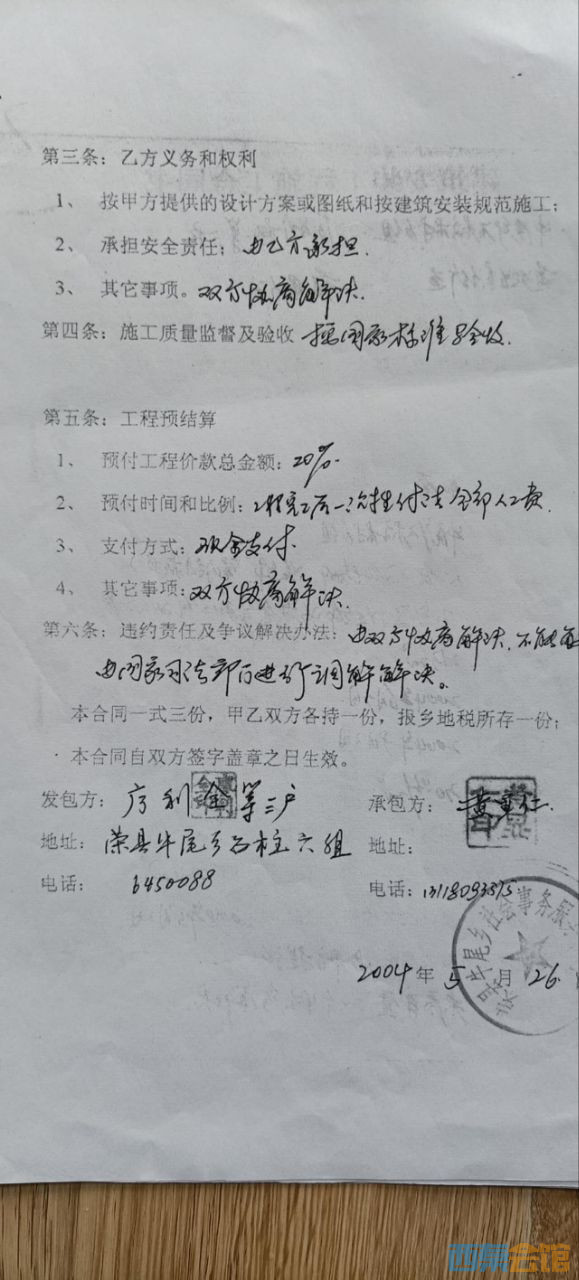 第三条：乙方义务和权利
1、 按甲方提供的设计方案或图纸和按建筑安装规范施工；
2、 承担安全责任；由乙方承担.
3、 其它事项。双方协商解决.
第四条：施工质量监督及验收 按国家标准验收.
第五条：工程预结算
1、 预付工程价款总金额：20%.
2、 预付时间和比例：工程完工后一次性付清全部人工费.
3、 支付方式：现金支付.
4、 其它事项：双方协商解决.
第六条：违约责任及争议解决办法：由双方协商解决.不能
由国家司法部门进行调解解决。
本合同一式三份，甲乙双方各持一份，报乡地税所存一份；
本合同自双方签字盖章之日生效。
发包方： 利金等三户
承包方：黄
地址：荣县牛尾乡石柱六组 地址：
电话：6450088
电话：
2004年5月26
牛尾乡社会事务服
西策会馆